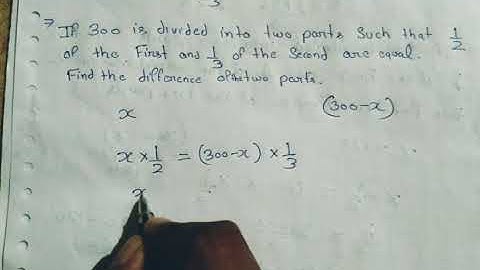 7 If 300 is divided into two parts such that 1/2
of the First and 1/3 of the Second are equal.
Find the difference of the two parts.
x (300-x)
x × 1/2 = (300-x) × 1/3
x